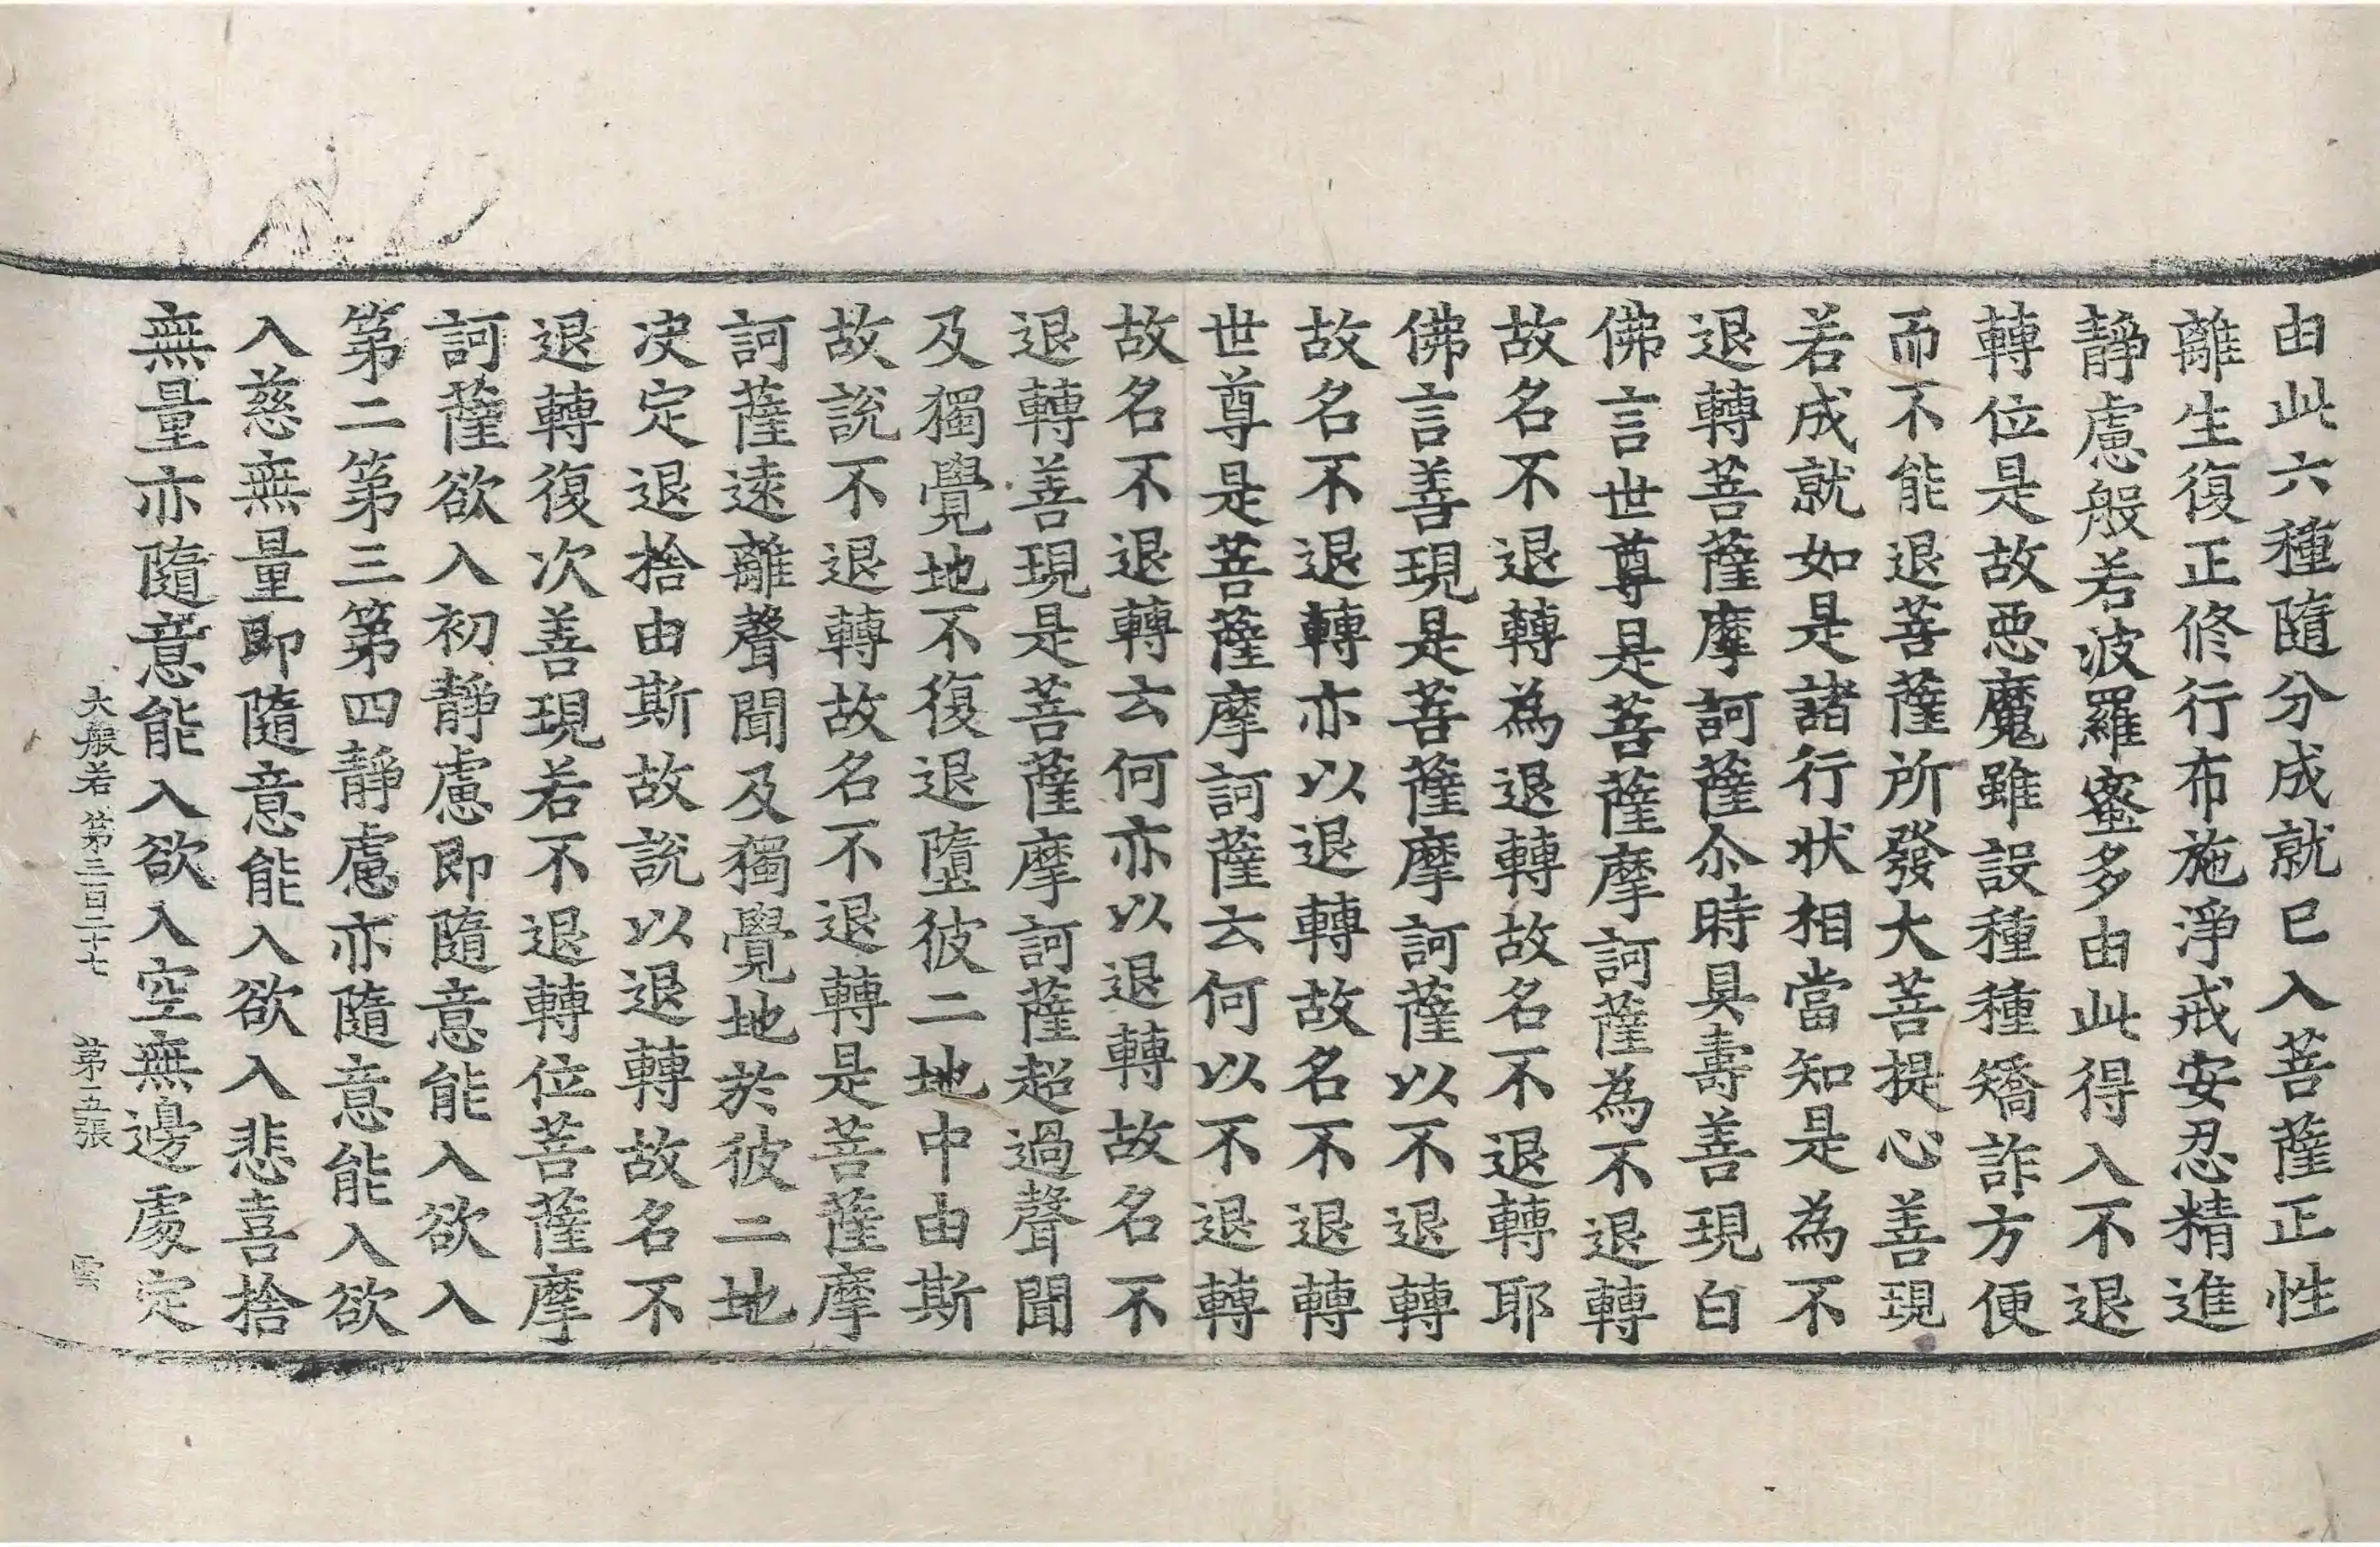 由此六種隨分成就已入菩薩正性
離生復正修行布施淨戒安忍精進
靜慮般若波羅蜜多由此得入不退
轉位是故惡魔雖設種種矯詐方便
而不能退菩薩所發大菩提心善現
若成就如是諸行狀相當知是為不
退轉菩薩摩訶薩尒時具壽善現白
佛言世尊是菩薩摩訶薩為不退轉
故名不退轉為退轉故名不退轉耶
佛言善現是菩薩摩訶薩以不退轉
故名不退轉亦以退轉故名不退轉
世尊是菩薩摩訶薩云何以不退轉
故名不退轉云何亦以退轉故名不
退轉善現是菩薩摩訶薩超過聲聞
及獨覺地不復退墮彼二地中由斯
故說不退轉故名不退轉是菩薩摩
訶薩遠離聲聞及獨覺地於彼二地
决定退捨由斯故說以退轉故名不
退轉復次善現若不退轉位菩薩摩
訶薩欲入初靜慮即隨意能入欲入
第二第三第四靜慮亦隨意能入欲
入慈無量即隨意能入欲入悲喜捨
無量亦隨意能入欲入空無邊處定
大般若第三百二十七 第五張 雲